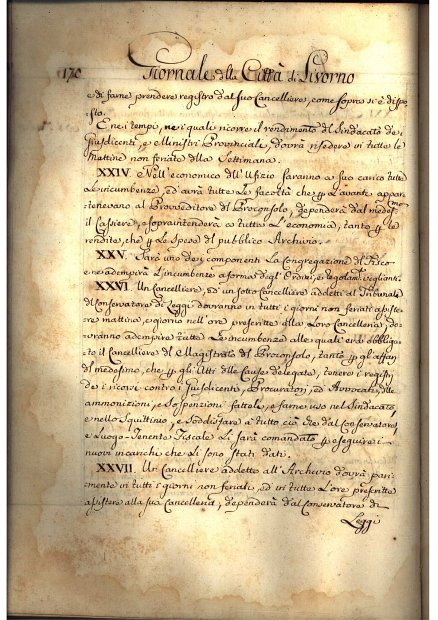 170 Giornale della Città di Livorno
e di farne prendere registro dal suo Cancelliere, come sopra si è dispo-
sto.
E ne i tempi, ne i quali ricorre il rendimento del Sindacato de i
Giusdicenti, e Ministri Provinciali, dovrà risedere in tutte le
Mattine non feriate della Settimana.
XXIV. Nell'economico dell'Ufizio saranno a suo carico tutte
Le incumbenze, ed avrà tutte Le facoltà che p L'avante appar-
tenevano al Provveditore del Proconsolo, dependerà dal medesmo
il Cassiere, e sopraintenderà a tutta L'economia, tanto p Le
rendite, che p Le Spese del pubblico Archivio.
XXV. Sarà uno de i componenti La Congregazione del Fisco
e ne adempirà L'incumbenze a forma degl'Ordini, e regolamti veglianti.
XXVI. Un Cancelliere, ed un sotto Cancelliere addetti al Tribunale
del Conservatore di Leggi dovranno in tutti i giorni non feriati assiste-
re mattina, e giorno nell'ore prescritte alla Loro Cancelleria, do-
vranno adempire tutte Le incumbenze alle quali era obbliga-
to il Cancelliere del Magistrato del Proconsolo, tanto p gli affari
del medesimo, che p gli Atti delle Cause delegate, tenere i registri
de i ricorsi contro i Giusdicenti, Procuratori, ed Avvocati, delle
ammonizioni, e Sospenzioni fattoli, e farne uso nel Sindacato
e nello Squittinio, e Soddisfare a tutto ciò che dal Conservatore,
e Luogo-Tenente Fiscale Li sarà comandato p eseguire i
nuovi incarichi che Li sono Stati dati.
XXVII. Un Cancelliere addetto all'Archivio dovrà pari-
mente in tutti i giorni non feriati, ed in tutte L'ore prescritte
assistere alla sua Cancelleria, dependerà dal Conservatore di
Leggi